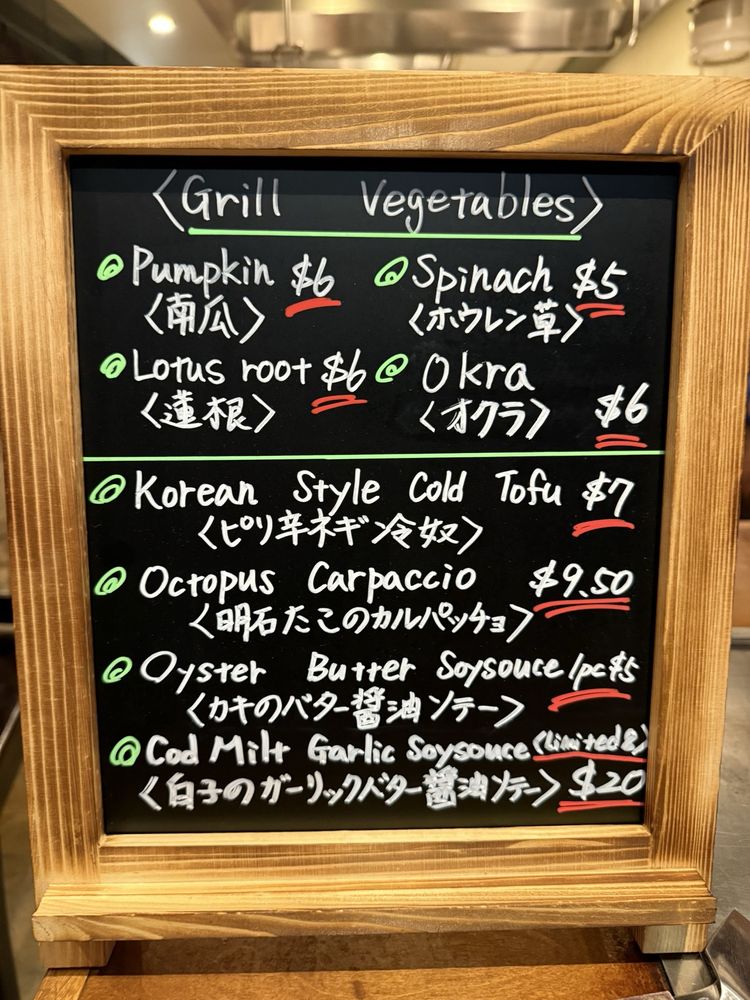 〈Grill Vegetables〉
Pumpkin $6
〈南瓜〉
Spinach $5
〈ホウレン草〉
Lotus root $6
〈蓮根〉
Okra
〈オクラ〉 $6
Korean Style Cold Tofu $7
〈ピリ辛ネギ冷奴〉
Octopus Carpaccio $9.50
〈明石たこのカルパッチョ〉
Oyster Butter Soysouce 1pc $5
〈カキのバター醤油ソテー〉
Cod Milt Garlic Soysouce (Limited 8)
〈白子のガーリックバター醤油ソテー〉 $20